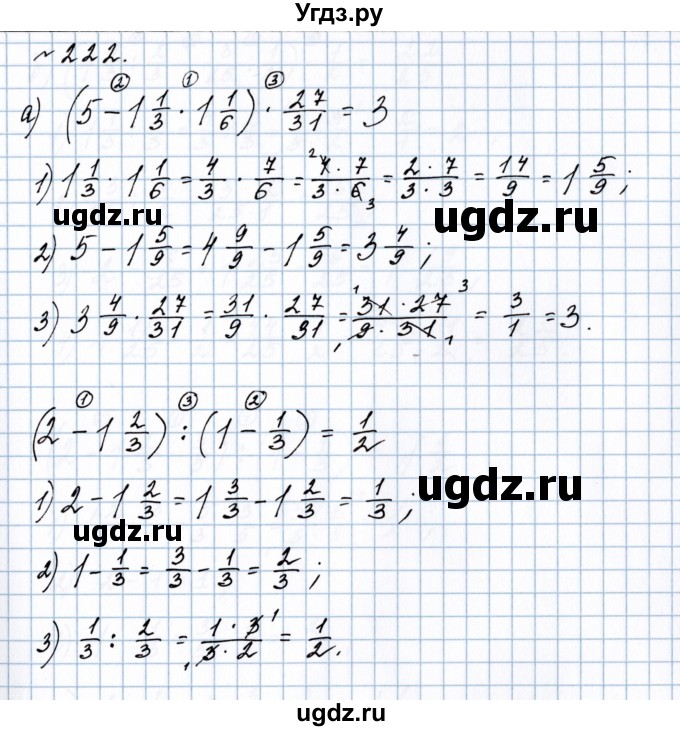 Угдз.ру
№ 222.
② ① ③
а) (5 − 1 1/3 · 1 1/6) · 27/31 = 3
1) 1 1/3 · 1 1/6 = 4/3 · 7/6 = (4 · 7)/(3 · 6) = (2 · 7)/(3 · 3) = 14/9 = 1 5/9;
ugdz.ru ugdz.ru
2) 5 − 1 5/9 = 4 9/9 − 1 5/9 = 3 4/9;
3) 3 4/9 · 27/31 = 31/9 · 27/31 = (31 · 27)/(9 · 31) = 3/1 = 3.
① ③ ②
(2 − 1 2/3) : (1 − 1/3) = 1/2
1) 2 − 1 2/3 = 1 3/3 − 1 2/3 = 1/3;
ugdz.ru ugdz.ru
2) 1 − 1/3 = 3/3 − 1/3 = 2/3;
3) 1/3 : 2/3 = (1 · 3)/(3 · 2) = 1/2.
ugdz.ru